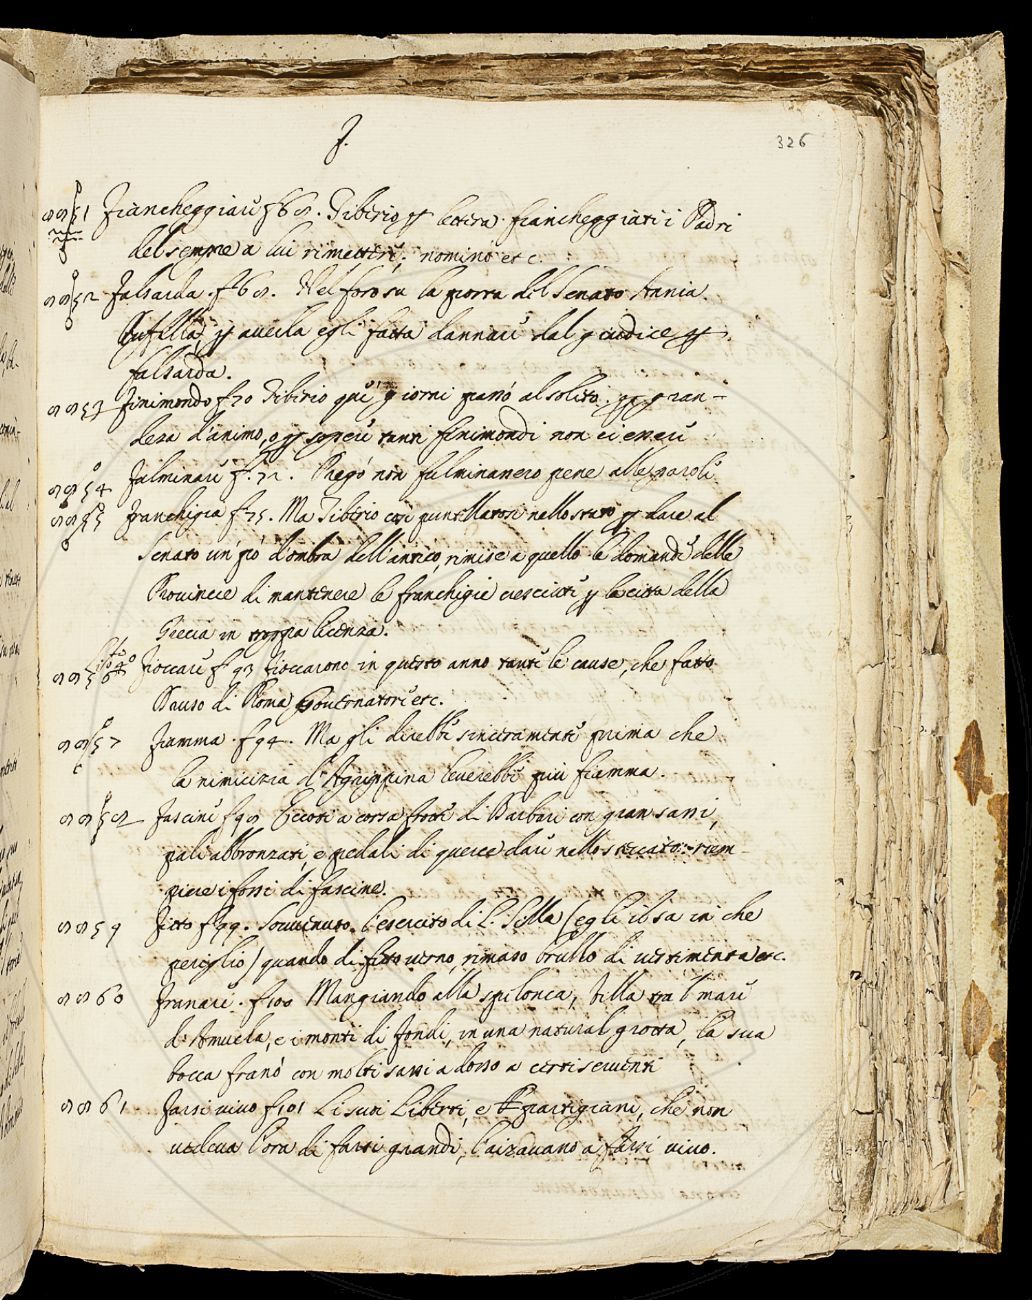 F.
326
8851 Fiancheggiare f 68. Tiberio p lettera fiancheggiati i Padri
del sempre a lui rimettere, nomino etc.
8852 Falsarda. f. 68. Nel foro su la porta del Senato Annia
Rufilla, p averla egli fatta dannare dal giudice p
falsarda.
8853 Finimondo f 70 Tiberio que' giorni passò al solito. p gran-
deza d'animo, o p sapere tanti finimondi non ci essere
8854 Fulminare f. 72. Pregò non fulminassero pene alle parole
8855 Franchigia f. 75. Ma Tiberio così puntellatosi nello stato p dare al
Senato un pò d'ombra dell'antico, rimise a quello le domande delle
Provincie di mantenere le franchigie cresciute p le città della
Grecia in troppa licenza.
8856 Fioccare f. 93 fioccarono in questo anno tante le cause, che fatto
Druso di Roma etc.
8857 Fiamma. f 94. Ma gli direbbe sinceramente prima che
la nimicizia d'Agrippina leverebbe più fiamma.
8858 Fascine f 98 Eccoti a corsa frotte di Barbari con gran sassi,
pali abbronzati, e pedali di querce dare nello steccato: riem-
piere i fossi di fascine.
8859 Fitto f 99. Souvenuto l'esercito di L. Silla (egli il sa in che
periglio) quando di fitto verno, rimaso brullo di vestimenta etc.
8860 Franare. f 100 Mangiando alla spilonca, Villa tra 'l mare
d'Amucla, e i monti di Fondi, in una natural grotta, la sua
bocca franò con molti sassi a dosso a certi serventi
8861 Farsi vivo f 101 Li suoi Liberti, e partigiani, che non
vedeva l'ora di farsi grandi, l'aizavano a farsi vivo.